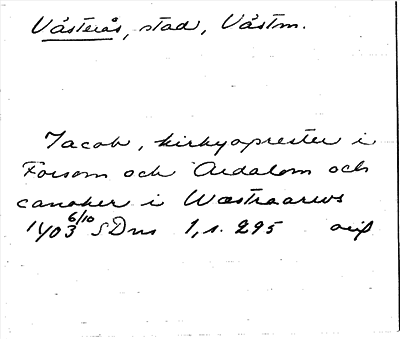 Västerås, stad, Västm.
Jacob, kirkyoprester i
Forsom och Aidalom och
canoker i Wæstraarws
1403 6/10 SDns 1, s. 295 avs